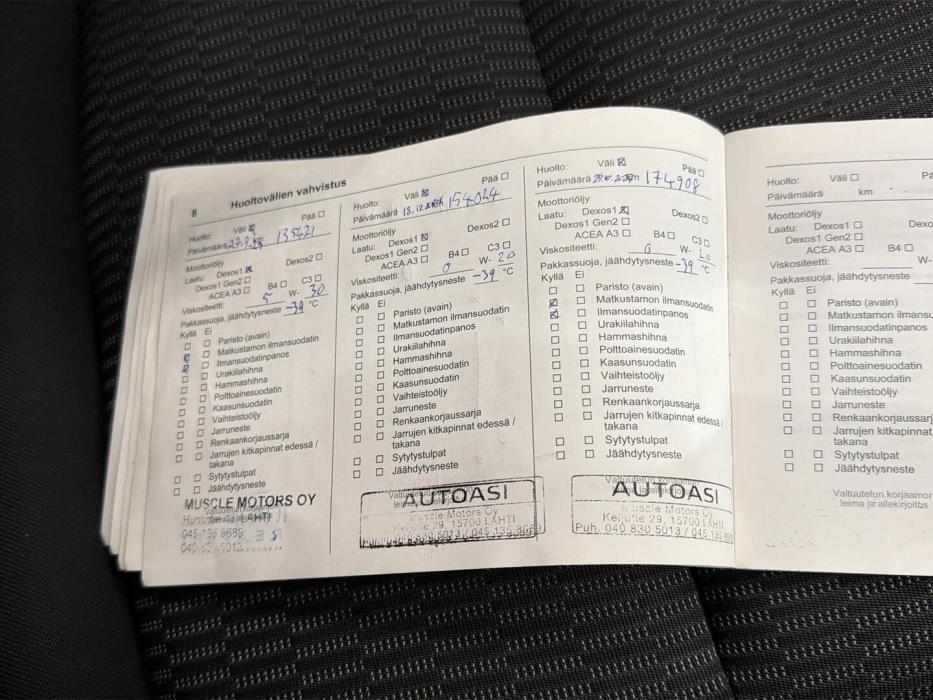 8 Huoltovälien vahvistus
Huolto: Väli ☒ Pää ☐
Päivämäärä 135421
Moottoriöljy
Laatu: Dexos1 ☒ Dexos2 ☐
Dexos1 Gen2 ☐
ACEA A3 ☐ B4 ☐ C3 ☐
Viskositeetti: 5 W- 30
Pakkassuoja, jäähdytysneste -39 °C
Kyllä Ei
☐ ☐ Paristo (avain)
☒ ☐ Matkustamon ilmansuodatin
☒ ☐ Ilmansuodatinpanos
☐ ☐ Urakiilahihna
☐ ☐ Hammashihna
☐ ☐ Polttoainesuodatin
☐ ☐ Kaasunsuodatin
☐ ☐ Vaihteistoöljy
☐ ☐ Jarruneste
☐ ☐ Renkaankorjaussarja
☐ ☐ Jarrujen kitkapinnat edessä /
takana
☐ ☐ Sytytystulpat
☐ ☐ Jäähdytysneste
MUSCLE MOTORS OY
LAHTI
Huolto: Väli ☒ Pää ☐
Päivämäärä 154024
Moottoriöljy
Laatu: Dexos1 ☒ Dexos2 ☐
Dexos1 Gen2 ☐
ACEA A3 ☐ B4 ☐ C3 ☐
Viskositeetti: 0 W- 20
Pakkassuoja, jäähdytysneste -39 °C
Kyllä Ei
☐ ☐ Paristo (avain)
☐ ☐ Matkustamon ilmansuodatin
☐ ☐ Ilmansuodatinpanos
☐ ☐ Urakiilahihna
☐ ☐ Hammashihna
☐ ☐ Polttoainesuodatin
☐ ☐ Kaasunsuodatin
☐ ☐ Vaihteistoöljy
☐ ☐ Jarruneste
☐ ☐ Renkaankorjaussarja
☐ ☐ Jarrujen kitkapinnat edessä /
takana
☐ ☐ Sytytystulpat
☐ ☐ Jäähdytysneste
AUTOASI
Muscle Motors Oy
Keijutie 29, 15700 LAHTI
Huolto: Väli ☒ Pää ☐
Päivämäärä 174908
Moottoriöljy
Laatu: Dexos1 ☒ Dexos2 ☐
Dexos1 Gen2 ☐
ACEA A3 ☐ B4 ☐ C3 ☐
Viskositeetti: 0 W- 20
Pakkassuoja, jäähdytysneste -39 °C
Kyllä Ei
☐ ☐ Paristo (avain)
☒ ☐ Matkustamon ilmansuodatin
☒ ☐ Ilmansuodatinpanos
☐ ☐ Urakiilahihna
☐ ☐ Hammashihna
☐ ☐ Polttoainesuodatin
☐ ☐ Kaasunsuodatin
☐ ☐ Vaihteistoöljy
☐ ☐ Jarruneste
☐ ☐ Renkaankorjaussarja
☐ ☐ Jarrujen kitkapinnat edessä /
takana
☐ ☐ Sytytystulpat
☐ ☐ Jäähdytysneste
AUTOASI
Muscle Motors Oy
Keijutie 29, 15700 LAHTI
Puh. 040 830 5013 / 045 135
Huolto: Väli ☐ Pä
Päivämäärä km
Moottoriöljy
Laatu: Dexos1 ☐ Dexo
Dexos1 Gen2 ☐
ACEA A3 ☐ B4 ☐
Viskositeetti: W-
Pakkassuoja, jäähdytysneste
Kyllä Ei
☐ ☐ Paristo (avain)
☐ ☐ Matkustamon ilmansu
☐ ☐ Ilmansuodatinpanos
☐ ☐ Urakiilahihna
☐ ☐ Hammashihna
☐ ☐ Polttoainesuodatin
☐ ☐ Kaasunsuodatin
☐ ☐ Vaihteistoöljy
☐ ☐ Jarruneste
☐ ☐ Renkaankorjaussarj
☐ ☐ Jarrujen kitkapinnat
takana
☐ ☐ Sytytystulpat
☐ ☐ Jäähdytysneste
Valtuutetun korjaamon
leima ja allekirjoitus